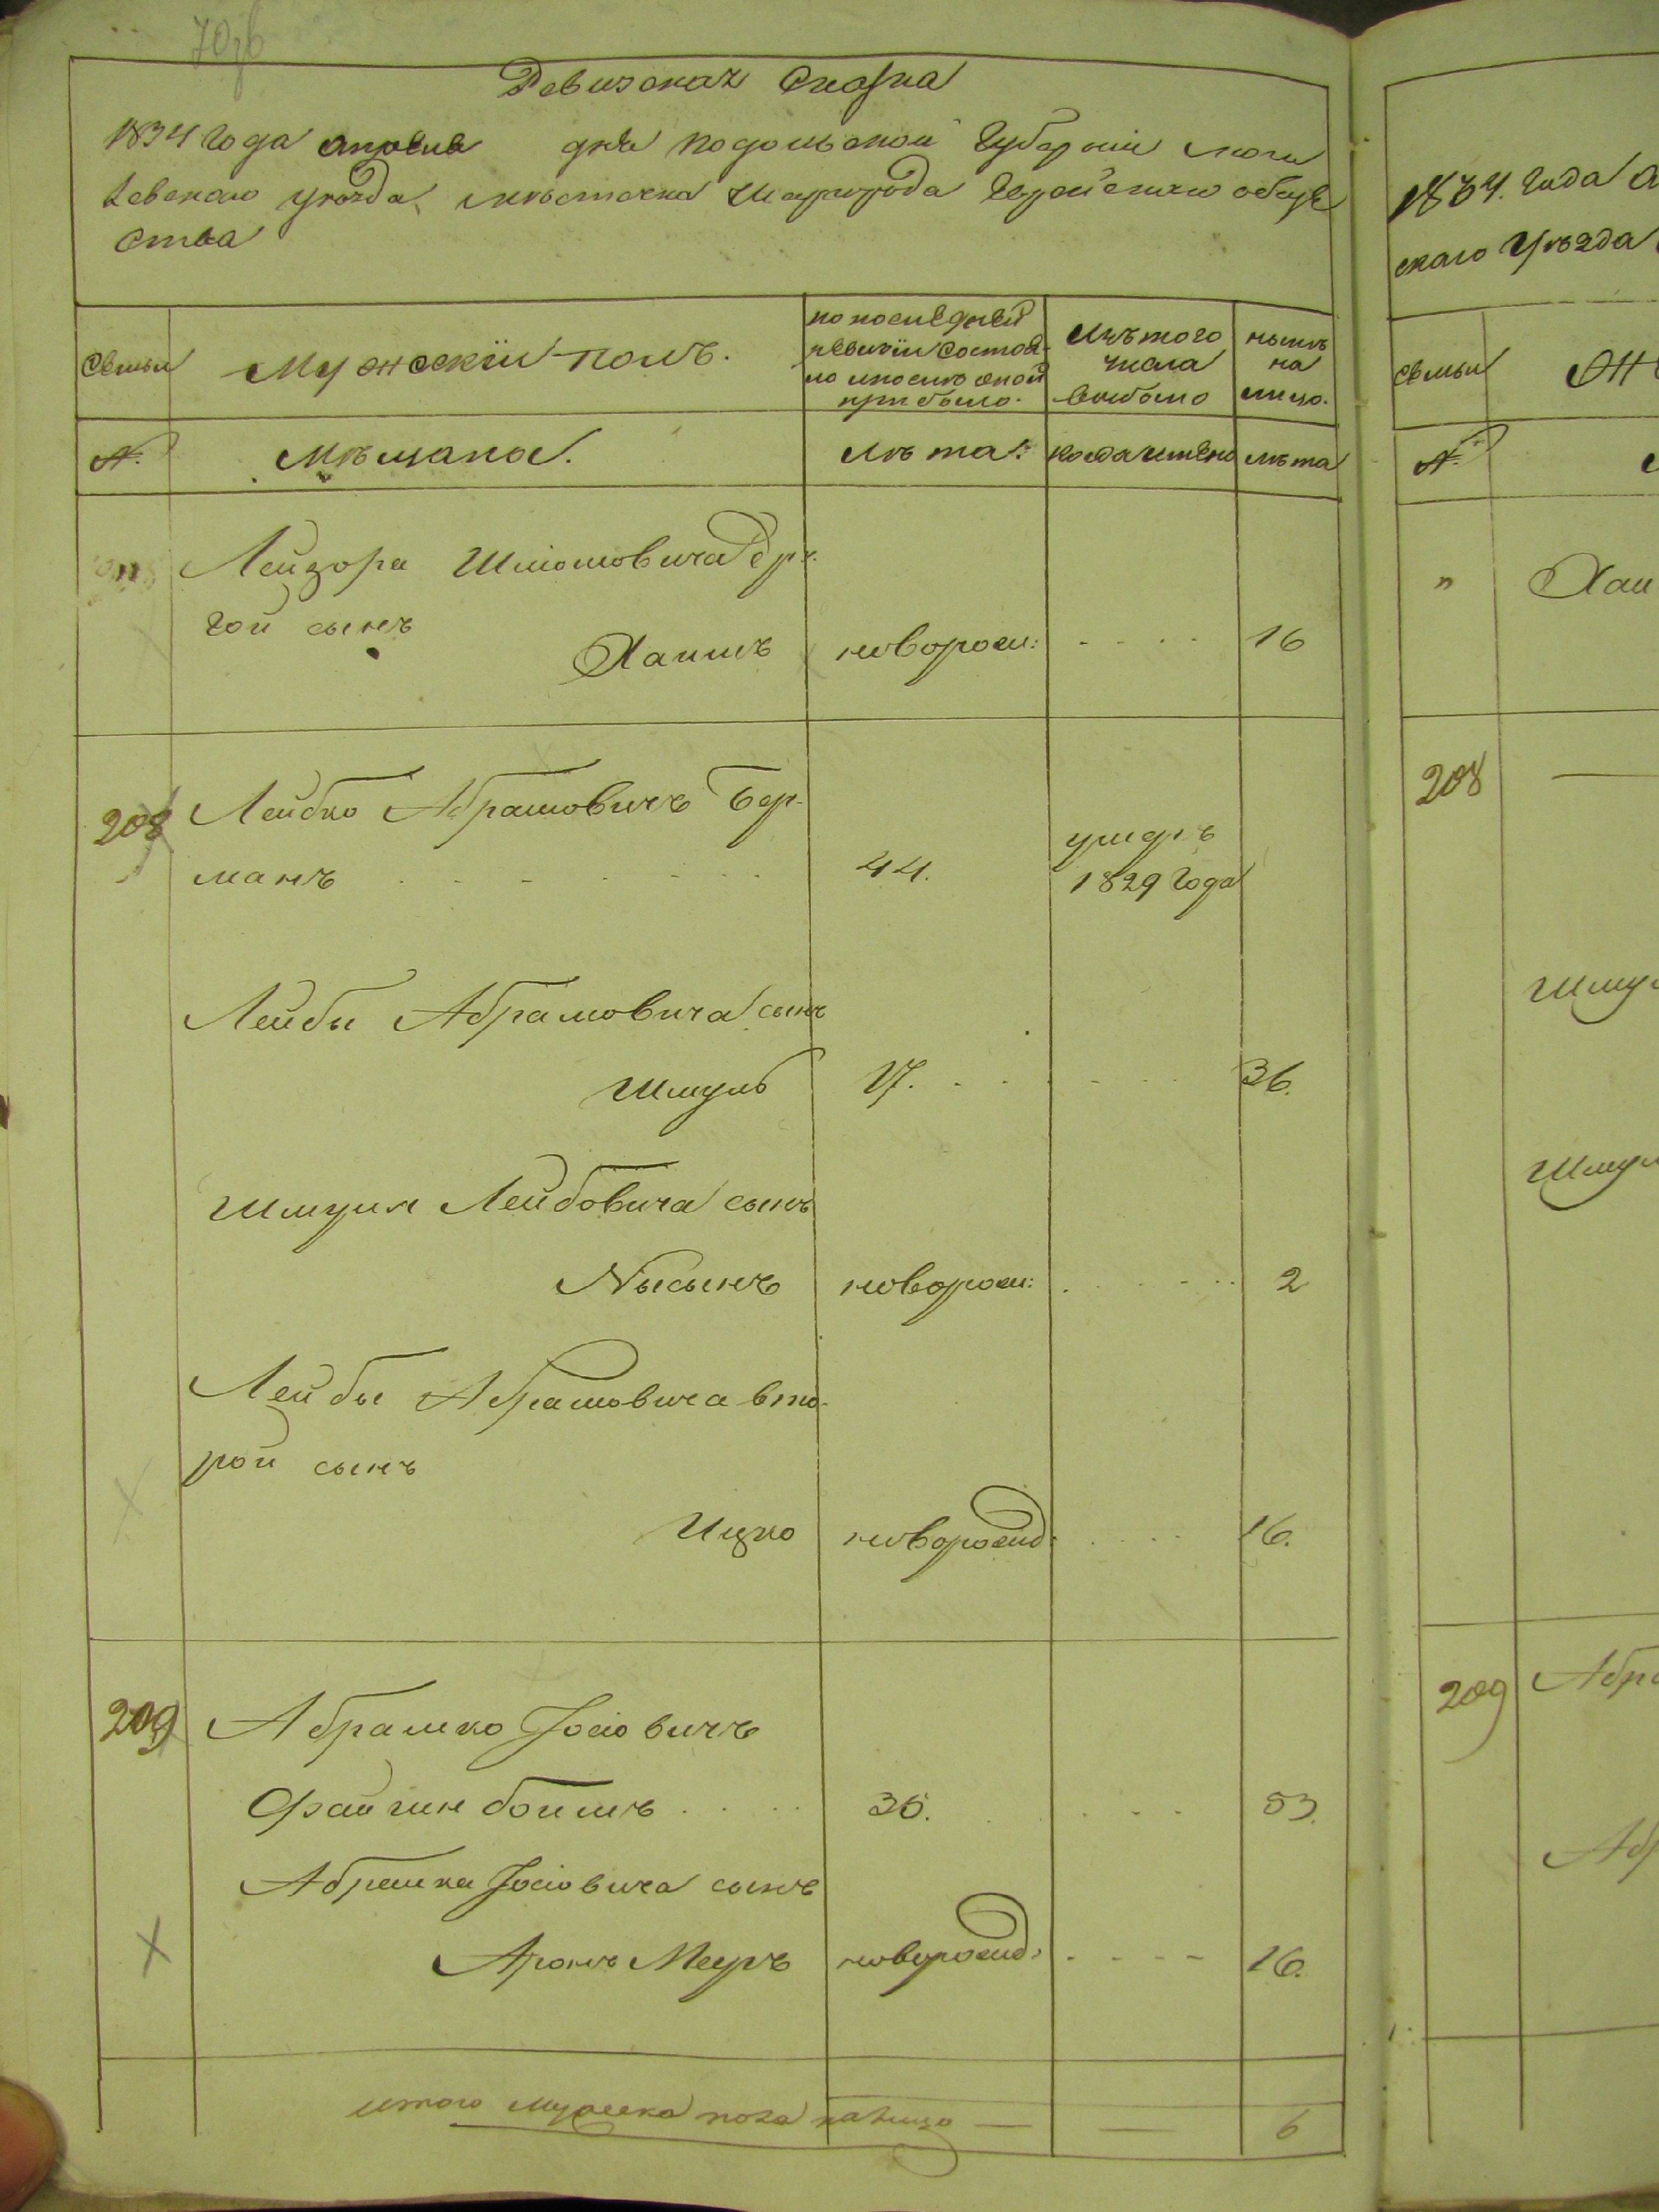 Ревизская Сказка
1834 года апреля дня Подольской Губернии моги
левского уезда, местечка Шаргорода Еврейского обще
ства
Семьи
Мужескїй полъ.
по последней
ревизїи состоя-
ло и после оной
прибыло.
Изъ того
числа
выбыло
ныне
на
лицо.
№.
Мѣщане.
Лѣта:
когда именно
лѣта
Лейзора Шмоиловича дру-
гой сынъ
Хаимъ новорож: 16
208
Лейбко Абрамовичъ Бер-
манъ 44. умеръ
1829 года
Лейбы Абрамовича сынъ
Шмуль 17. 36.
Шмуля Лейбовича сынъ
Нысынъ новорож: 2
Лейбы Абрамовича вто-
рой сынъ
Ицко новорожд: 16.
209
Абрамко Іосіовичъ
Файгинбоимъ 35. 53.
Абрамка Іосіовича сынъ
Аронъ Меиръ новорожд: 16.
итого мужеска пола налицо — — 6
1834. года а
скаго Уѣзда
семьи
№.
" Хаи
208
Шмул
Шмул
209 Абра
Абр